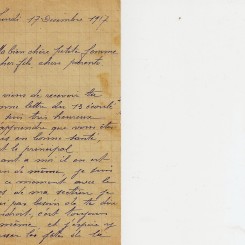 Lundi, 17 Décembre 1917
Ma bien chère petite femme
cher fils chers parents
viens de recevoir ta
bonne lettre du 13 écrite
suis très heureux
apprendre que vous êtes
en bonne santé
est le principal
Quant a moi il en est
de même, je suis
ce moment avec le
de ma section, je
pas besoin de te dire
c'est toujours
même et j'espère y
passer les fêtes de la